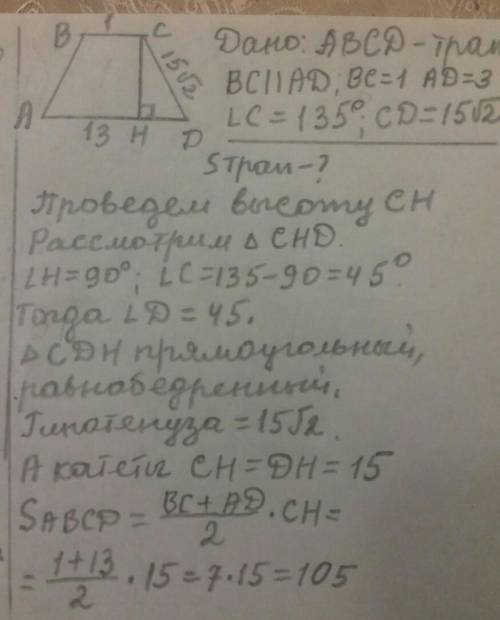 B 1 C
15√2
A 13 H D
Дано: ABCD - трап
BC||AD; BC=1 AD=3
∠C=135°; CD=15√2
Sтрап-?
Проведем высоту CH
Рассмотрим △CHD.
∠H=90°; ∠C=135-90=45°.
Тогда ∠D=45.
△CDH прямоугольный,
равнобедренный.
Гипотенуза=15√2.
А катеты CH=DH=15
SABCD=\frac{BC+AD}{2}·CH=
=\frac{1+13}{2}·15=7·15=105